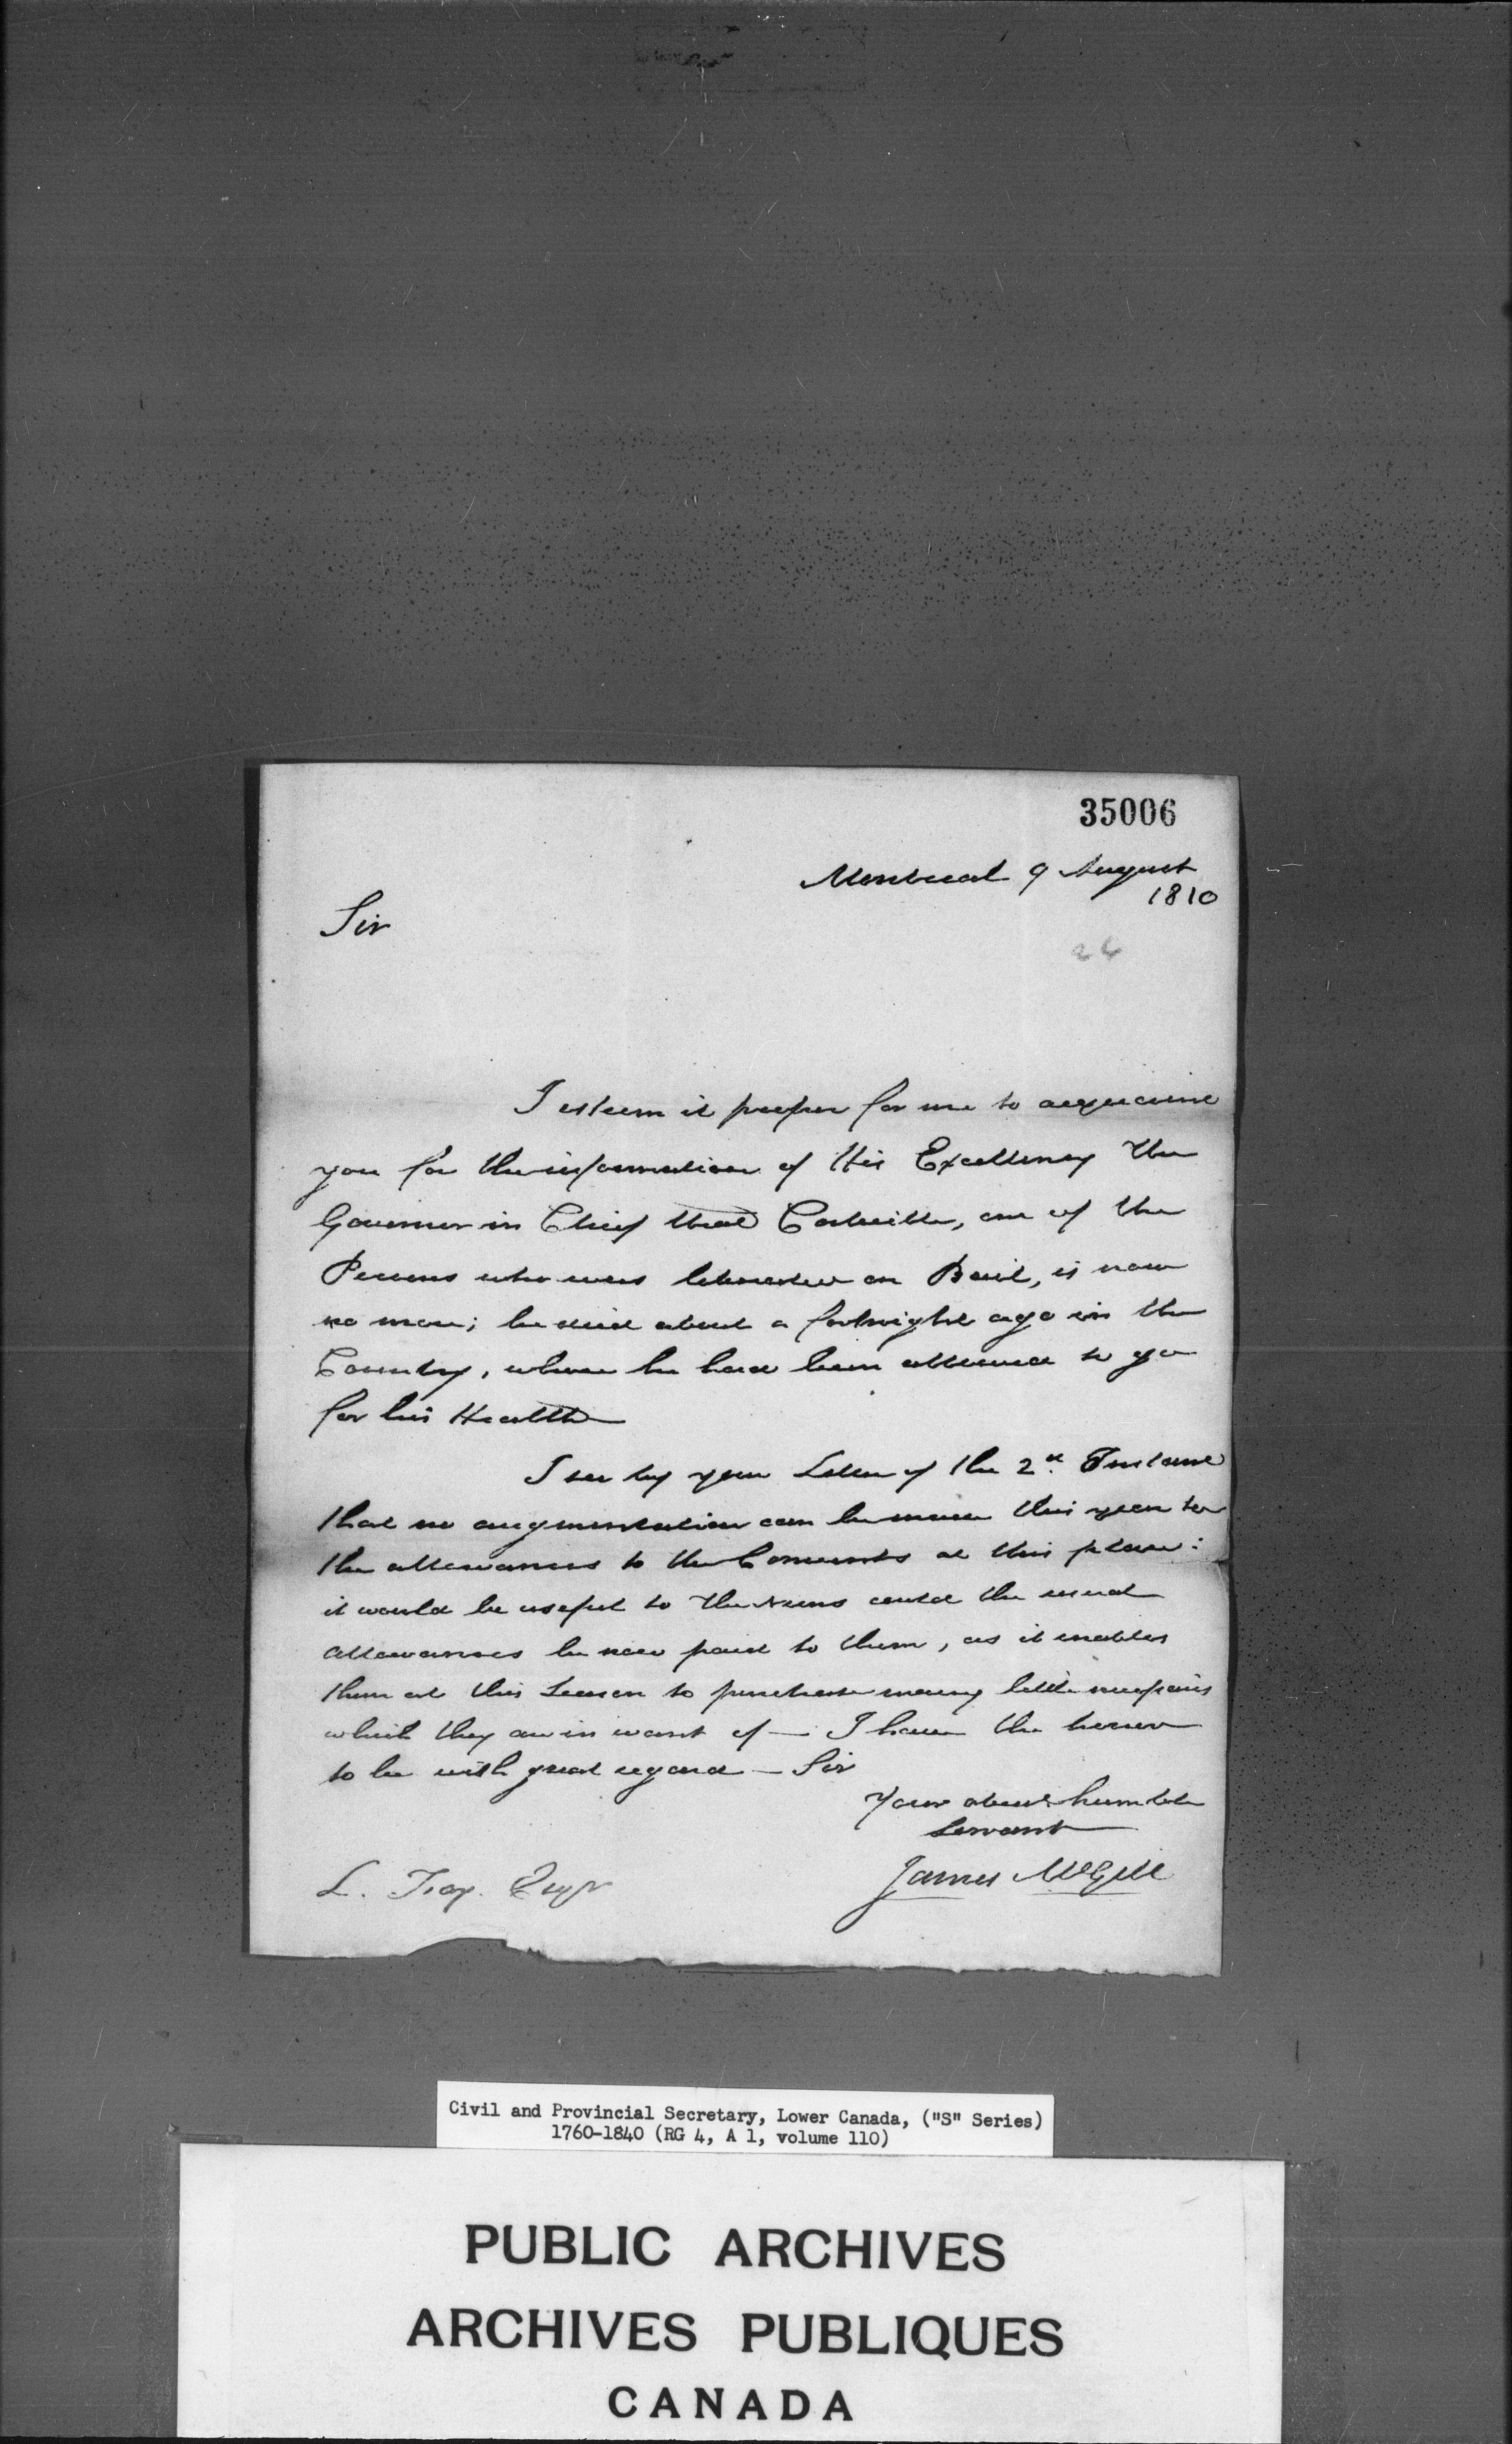 35006
Montreal 9 August
1810
Sir
24
I esteem it proper for me to acquaint
you for the information of His Excellency The
Governor in Chief that Corbeille, one of the
Persons who was liberated on Bail, is now
no more; he died about a fortnight ago in the
Country, where he had been allowed to go
for his Health
I see by your Letter of the 2d. Instant
that no augmentation can be made this year to
the allowances to the Convents at this place:
it would be useful to the Nuns could the usual
allowances be now paid to them, as it enables
them at this Season to purchase many little
which they are in want of — I have the honor
to be with great regard — Sir
Your obedt. humble
Servant
James McGill
L. Foy. Esqr
Civil and Provincial Secretary, Lower Canada, ("S" Series)
1760-1840 (RG 4, A 1, volume 110)
PUBLIC ARCHIVES
ARCHIVES PUBLIQUES
CANADA